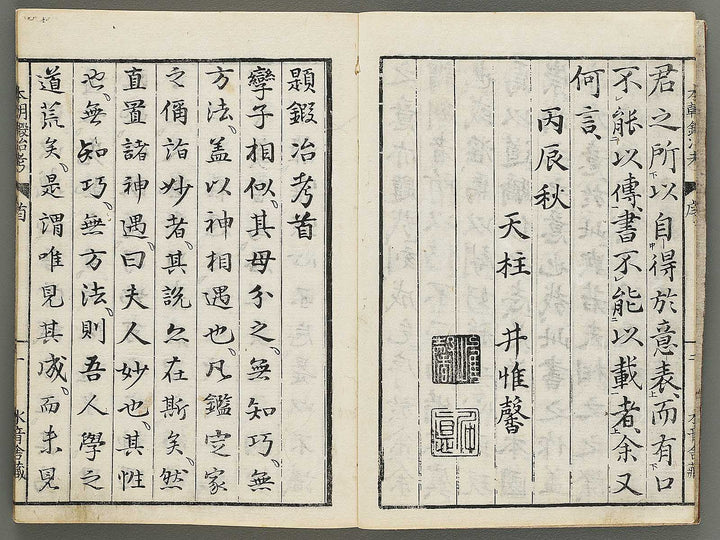 君之所以自得於意表、而有口
不能以傳書不能以載者、余又
何言、
丙辰秋
天柱 井惟馨
本朝鍛冶考 序
水音舎藏
題鍛冶考首
孿子相似、其母分之、無知巧、無
方法、蓋以神相遇也、凡鑑定家
之偁詣妙者、其説亦在斯矣、然
直置諸神遇曰夫人妙也、其性
也、無知巧、無方法、則吾人學之
道荒矣、是謂唯見其成、而未見
本朝鍛冶考 首 一
水音舎藏